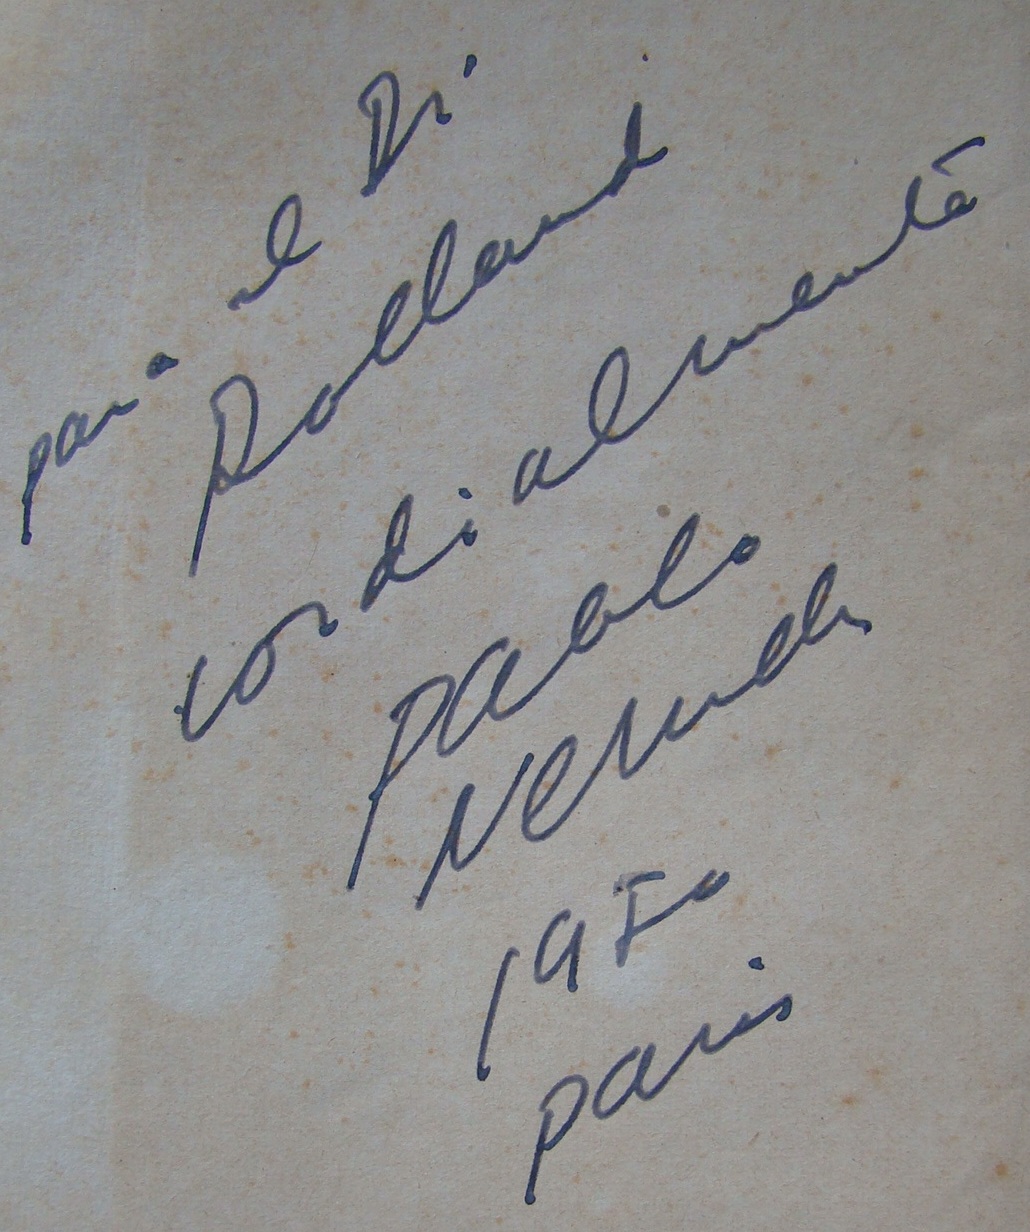 para el Dr
Rolland
cordialmente
Pablo
Neruda
1950
Paris